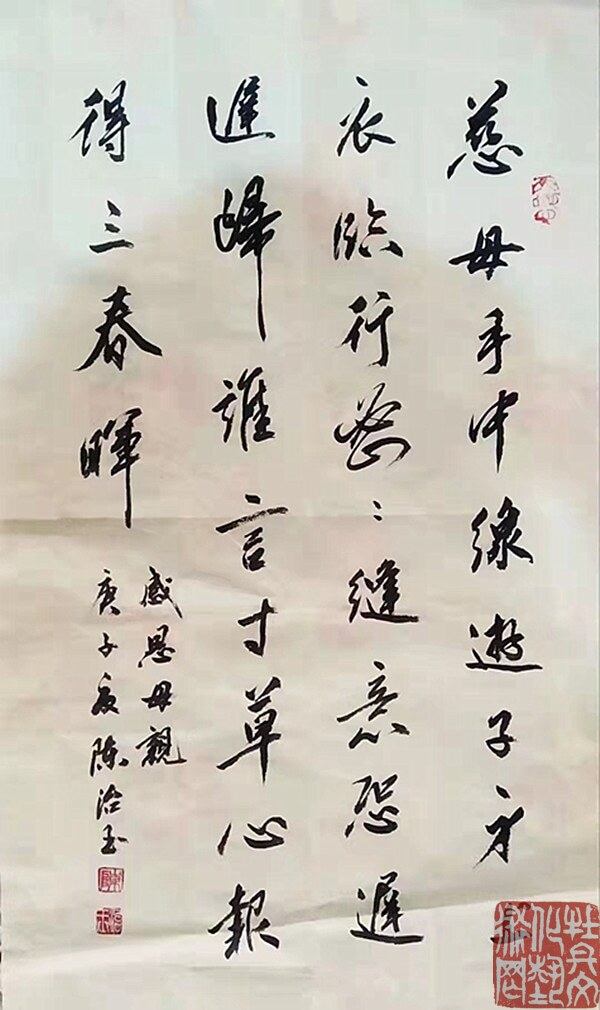 慈母手中線遊子身上
衣臨行密:縫意恐遲
遲歸誰言寸草心報
得三春暉
感恩母親
庚子夏陳治玉